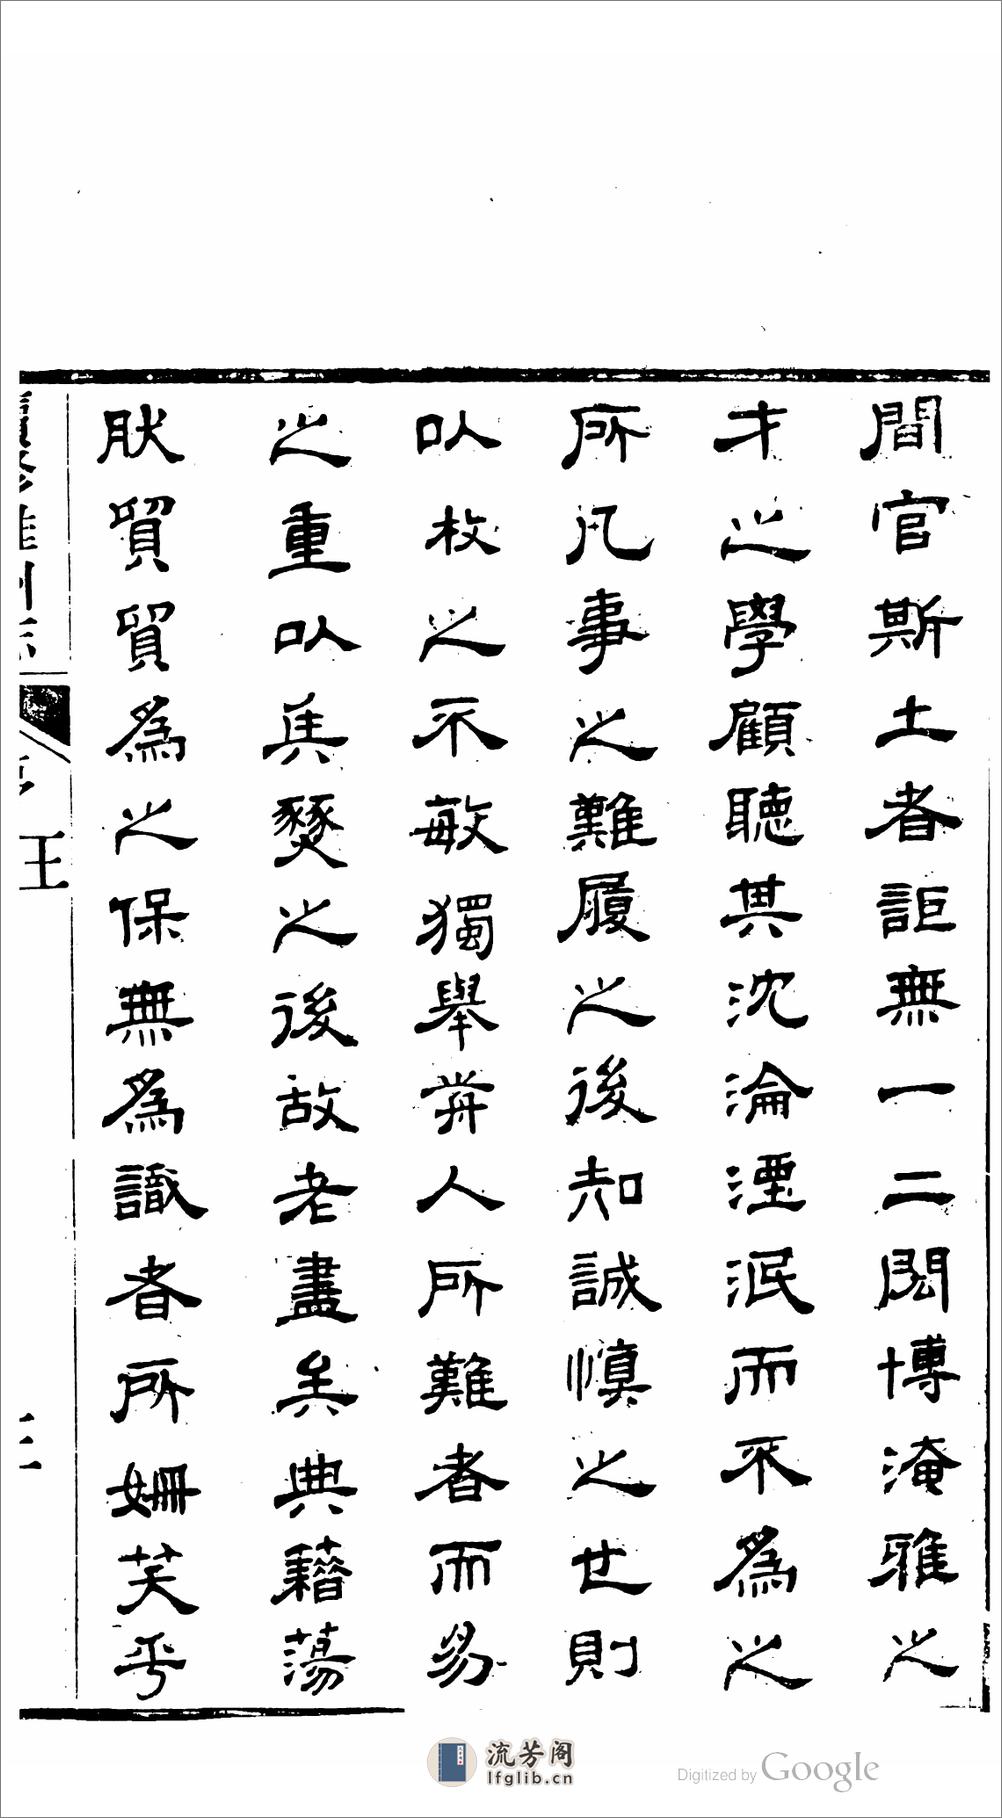 間官斯土者詎無一二閎博淹雅之
才之學顧聽其沈淪湮泯而不爲之
所凡事之難履之後知誠慎之世則
以枚之不敏獨舉前人所難者而易
之重以兵燹之後故老盡矣典籍蕩
肰貿貿爲之保無爲識者所姍笑乎
續修
州志
王
流芳阁
lfglib.cn
Digitized by Google